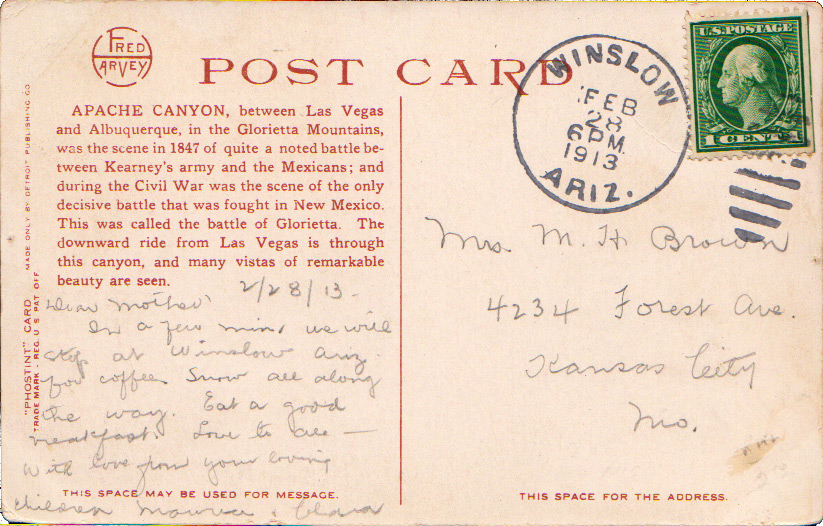 FRED HARVEY
POST CARD
APACHE CANYON, between Las Vegas
and Albuquerque, in the Glorietta Mountains,
was the scene in 1847 of quite a noted battle be-
tween Kearney's army and the Mexicans; and
during the Civil War was the scene of the only
decisive battle that was fought in New Mexico.
This was called the battle of Glorietta. The
downward ride from Las Vegas is through
this canyon, and many vistas of remarkable
beauty are seen.
"PHOSTINT" CARD MADE ONLY BY DETROIT PUBLISHING CO
TRADE MARK - REG. U S PAT OFF
2/28/13 -
Dear Mother
In a few mins we will
stop at Winslow Ariz.
for coffee. Snow all along
the way. Eat a good
breakfast. Love to all —
With love from your loving
children Maurice & Clara
THIS SPACE MAY BE USED FOR MESSAGE.
WINSLOW
FEB
28
6 PM
1913
ARIZ.
U.S. POSTAGE
1 CENT 1
Mrs. M. H. Brown
4234 Forest Ave.
Kansas City
Mo.
THIS SPACE FOR THE ADDRESS.